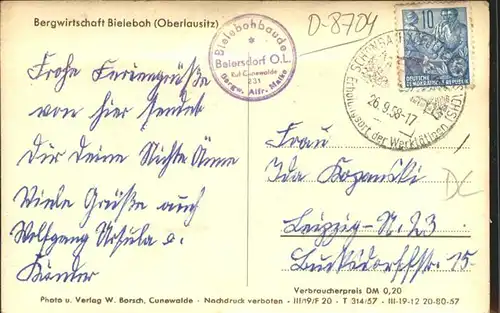 Bergwirtschaft Bieleboh (Oberlausitz)
Bielebohbaude
Beiersdorf O.L.
Ruf Cunewalde
231
Bergw. Alfr. Maike
D-8704
10
DEUTSCHE
DEMOKRATISCHE REPUBLIK
26.9.58-17
Erholungsort der Werktätigen
Frohe Feriengrüße
von hier sendet
Dir Deine Nichte Änne
Viele Grüße auch
Wolfgang Ursula u.
Kinder
Frau
Ida Kozanski
Leipzig-N. 23
15
DC
Verbraucherpreis DM 0,20
Photo u. Verlag W. Barsch, Cunewalde - Nachdruck verboten - III/9/F 20 - T 314/57 - III-19-12 20-80-57